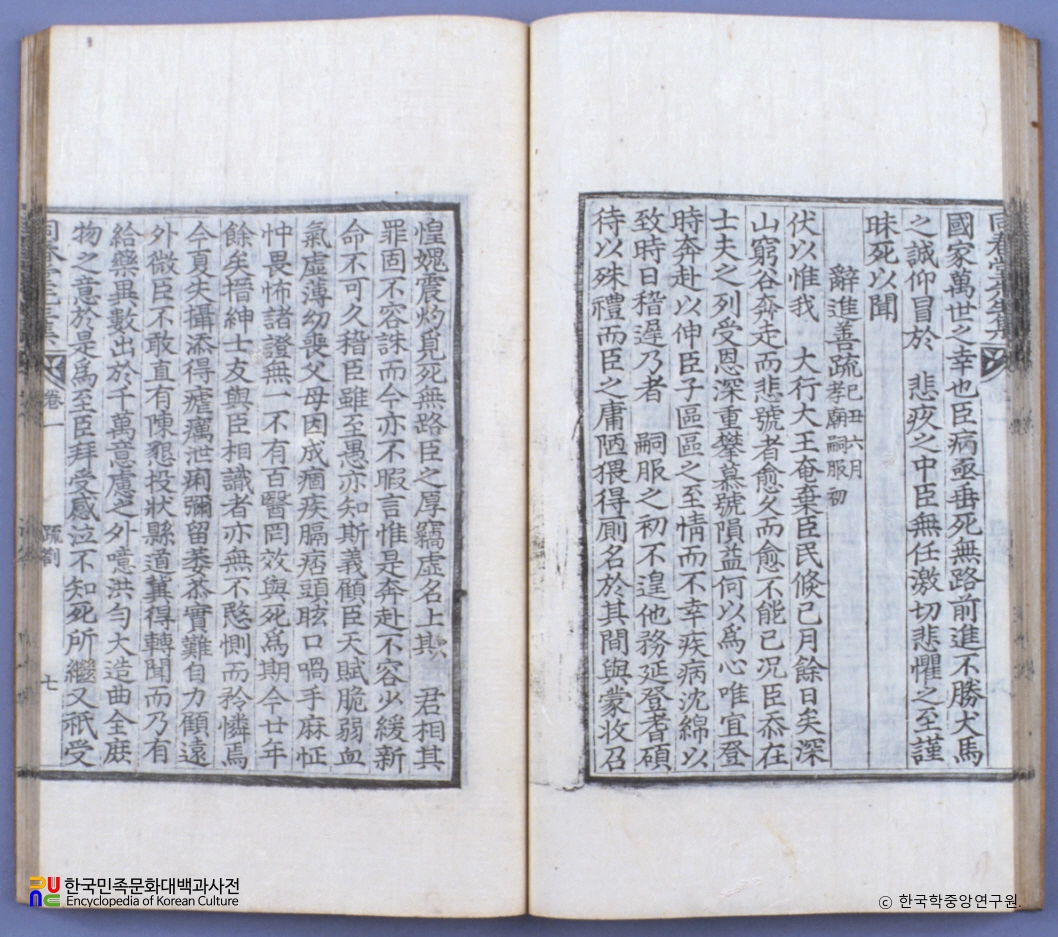 同春堂先生集
國家萬世之幸也臣病亟垂死無路前進不勝犬馬
之誠仰冒於 悲疚之中臣無任激切悲懼之至謹
昧死以聞
辭進善疏 己丑六月 孝廟嗣服初
伏以惟我 大行大王奄棄臣民候已月餘日矣深
山窮谷奔走而悲號者愈久而愈不能已況臣忝在
士夫之列受恩深重攀慕號隕益何以爲心唯宜登
時奔赴以伸臣子區區之至情而不幸疾病沈綿以
致時日稽遲乃者 嗣服之初不遑他務延登耆碩
待以殊禮而臣之庸陋猥得厠名於其間與蒙收召
惶媿震灼覓死無路臣之厚竊虛名上欺 君相其
罪固不容誅而今亦不暇言惟是奔赴不容少緩新
命不可久稽臣雖至愚亦知斯義顧臣天賦脆弱血
氣虛薄幼喪父母因成痼疾膈痞頭眩口喎手麻怔
忡畏怖諸證無一不有百醫罔效與死爲期今廿年
餘矣搢紳士友與臣相識者亦無不慜惻而矜憐焉
今夏失攝添得瘧癘泄痢彌留萎苶實難自力顧遠
外微臣不敢直有陳懇投狀縣道冀得轉聞而乃有
給藥異數出於千萬意慮之外噫洪勻大造曲全庶
物之意於是爲至臣拜受感泣不知死所繼又祇受
卷一 疏箚 七
한국민족문화대백과사전
Encyclopedia of Korean Culture
ⓒ 한국학중앙연구원.